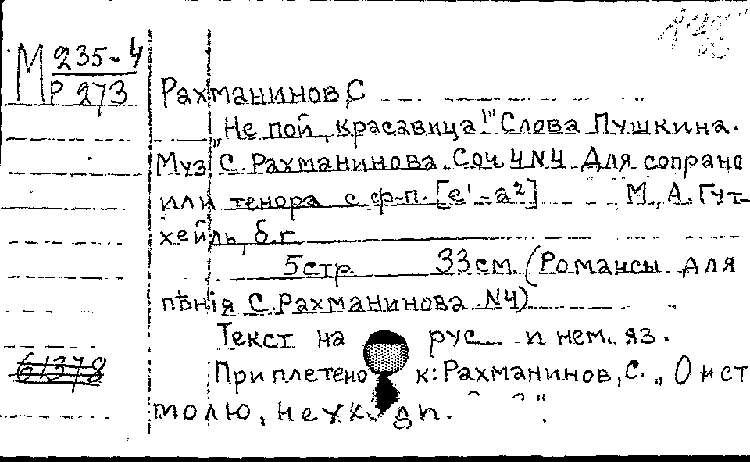 М 235-4
Р 273
Рахманинов, С
„Не пой, красавица!" Слова Пушкина.
Муз. С. Рахманинова. Соч. 4 N4. Для сопрано
или тенора с ф-п. [e'-a²] М., А. Гут-
хейль, б.г.
5 стр. 33 см. (Романсы для
пѣнiя С. Рахманинова N4)
Текст на рус. и нем. яз.
61378
Приплетено к: Рахманинов, С. „О
молю, не